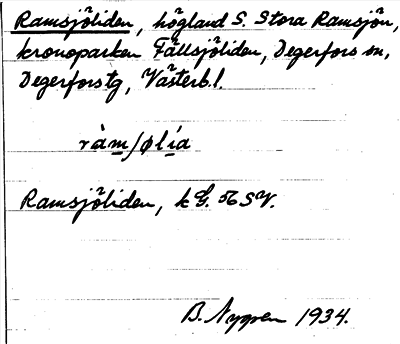 Ramsjöliden, högland S. Stora Ramsjön,
kronoparken Fällsjöliden, Degerfors sn,
Degerfors tg, Västerb. l.
ràmʃølía
Ramsjöliden, k G. 56 SV.
B. Nygren 1934.